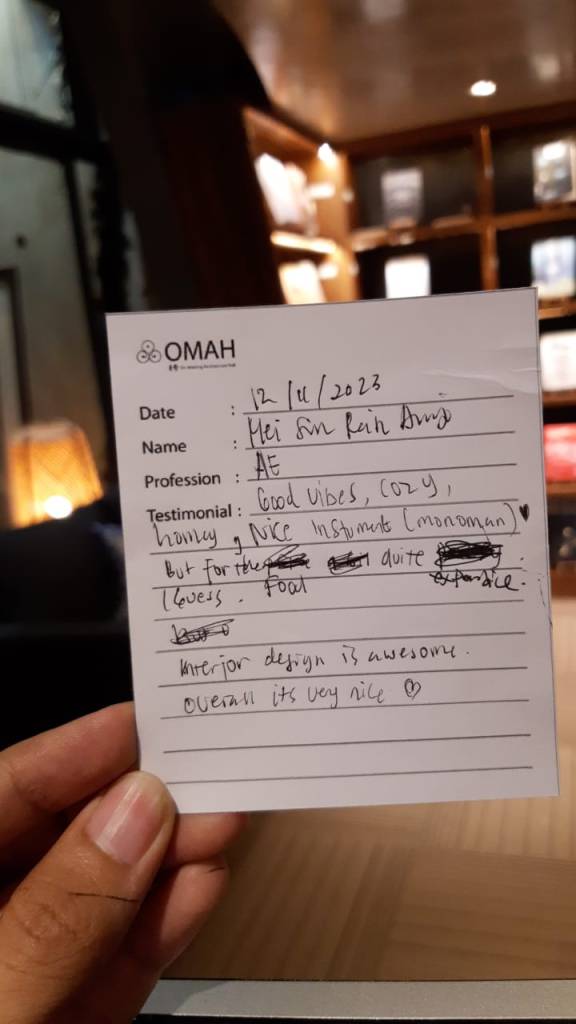 OMAH
Date : 12/11/2023
Name : Mei Sin
Profession : AE
Testimonial : Good vibes, cozy,
homey, Nice Instuments (monoman) ♥
But for the quite .
I Guess. Food
Interior design is awesome.
Overall its very nice ♡